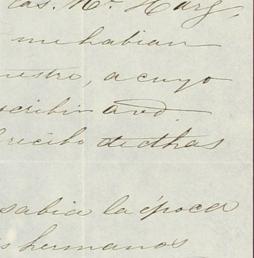 las. Mr. Harg,
me habian
uestro, a cuyo
scribir a vd.
l recibo de dhas
sabia la época
is hermanos